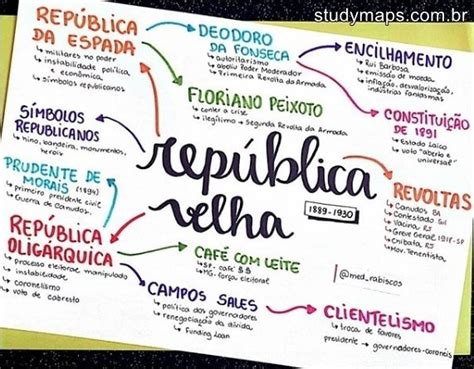 studymaps.com.br
REPÚBLICA
DA ESPADA
militares no poder
instabilidade política
e econômica,
símbolos republicanos
DEODORO
DA FONSECA
autoritarismo
aboliu Poder Moderador
Primeira Revolta da Armada
ENCILHAMENTO
Rui Barbosa,
emissão de moeda,
inflação, desvalorização,
indústrias fantasmas
FLORIANO PEIXOTO
conter a crise
ilegítimo → Segunda Revolta da Armada.
CONSTITUIÇÃO
DE 1891
Estado Laico
voto "aberto e
universal"
SÍMBOLOS
REPUBLICANOS
hino, bandeira, monumentos,
heróis
república
velha
1889-1930
PRUDENTE DE
MORAIS (1894)
primeiro presidente civil
Guerra de Canudos.
REVOLTAS
Canudos BA
Contestado
Vacina, RJ
Greve Geral 1917-SP
Chibata, RJ
Mov. Tenentista,
REPÚBLICA
OLIGÁRQUICA
processo eleitoral manipulado
instabilidade
coronelismo
voto de cabresto
CAFÉ COM LEITE
SP- café $$
MG- força eleitoral
@med_rabiscos
CAMPOS SALES
política dos governadores
renegociação da dívida,
Funding Loan
CLIENTELISMO
troca de favores
presidente → governadores-coronéis